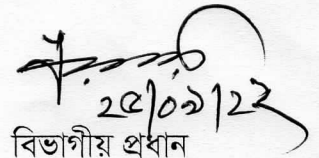 ২৫/০৯/২২
বিভাগীয় প্রধান